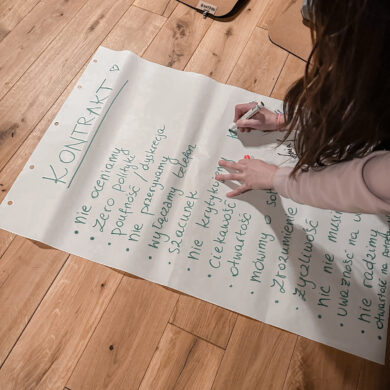 KONTRAKT ♡
• nie oceniamy
• zero polityki
• poufność / dyskrecja
• nie przerywamy
• wyłączamy telefon
• szacunek
• nie krytyku
• ciekawość
• otwartość
• mówimy o so
• zrozumienie
• życzliwość
• nic nie mus
• uważność na
• nie radzimy
otwartość na po